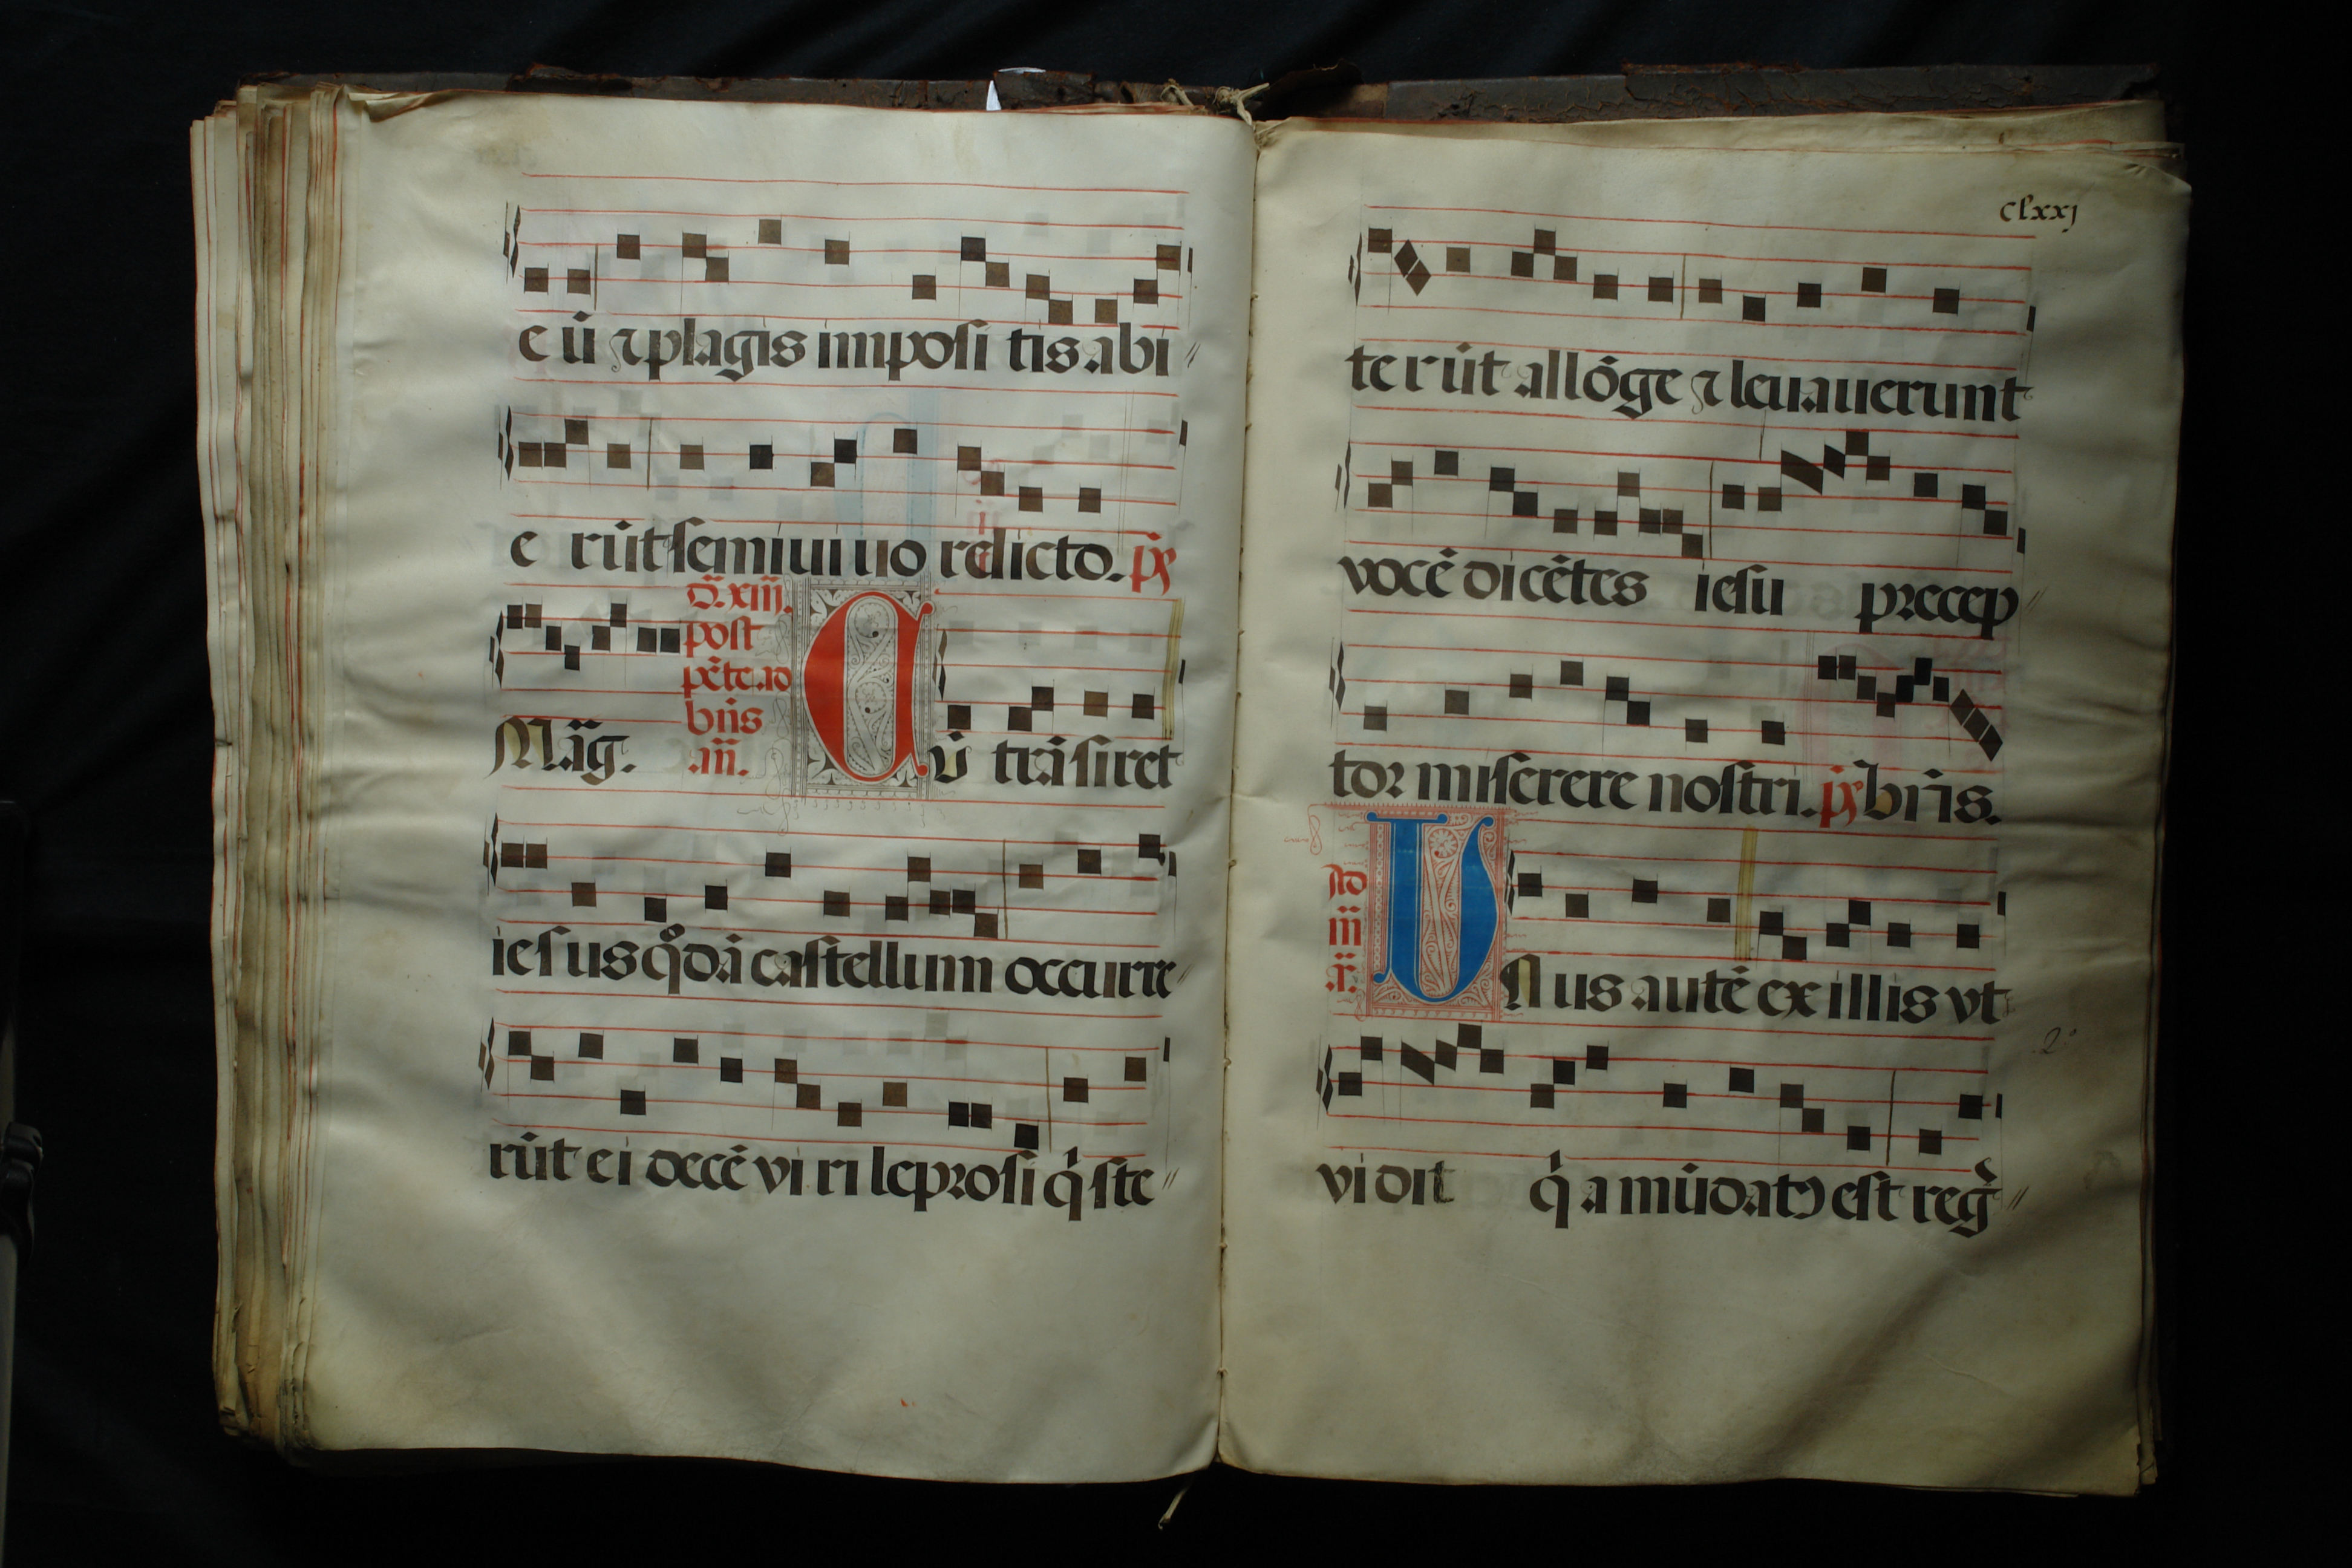 e ū ⁊ plagis imposi tis abi //
e rūt semiuiuo relicto. p̄s
d̄. xiij.
post
pēte.co
br̄is
añ.
Māg̅. C ū trāsiret
iesus qͦdā castellum occurre //
rūt ei decē viri leprosi q̇ ste //
clxxj
terūt allōge ⁊ leuauerunt
vocē dicētes iesu precep //
tor miserere nostri. p̄s br̄is.
Ad
m̄
a͞.
U Nus autē ex illis vt
vidit q̇ a mūdatꝰ est reg̅ //
2º